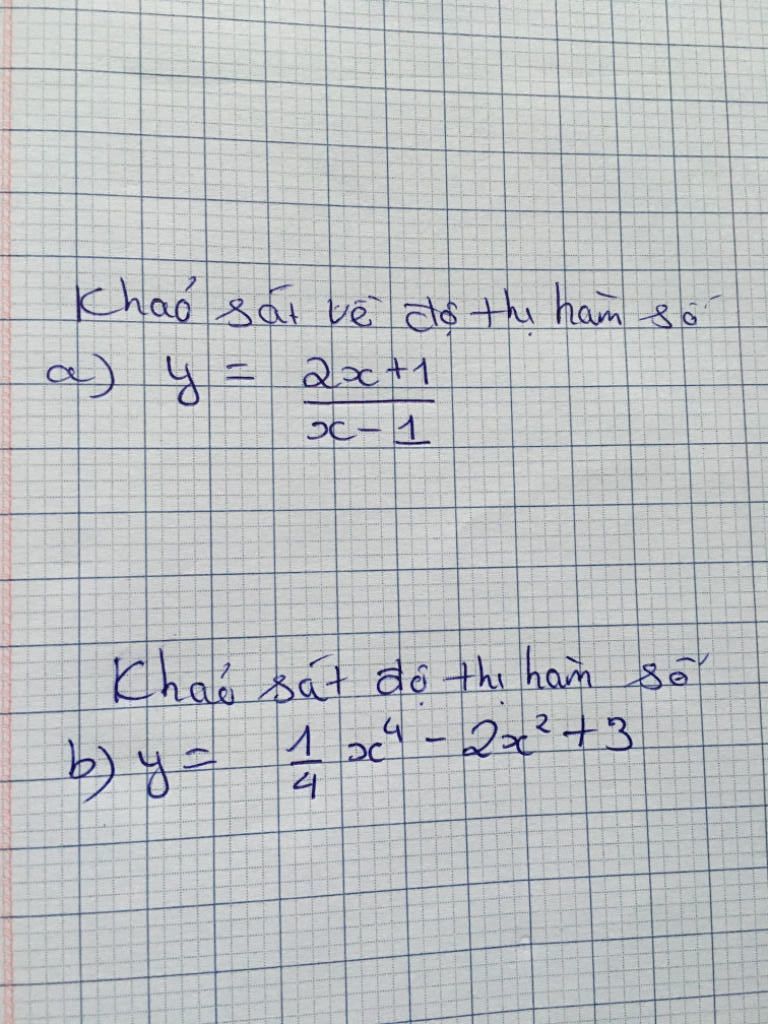 Khaỏ sát vẽ độ thị hàm số
a) y = \frac{2x+1}{x-1}
Khaỏ sát độ thị hàm số
b) y = \frac{1}{4} x⁴ - 2x² + 3